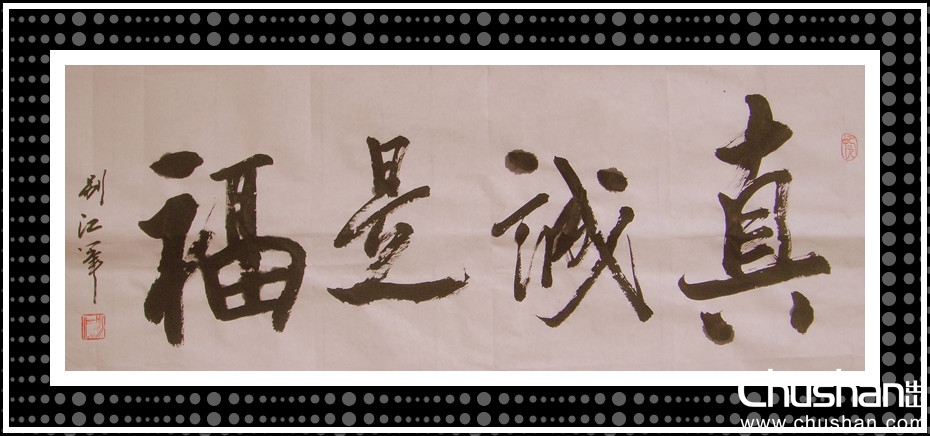 真诚是福
chushan
www.chushan.com